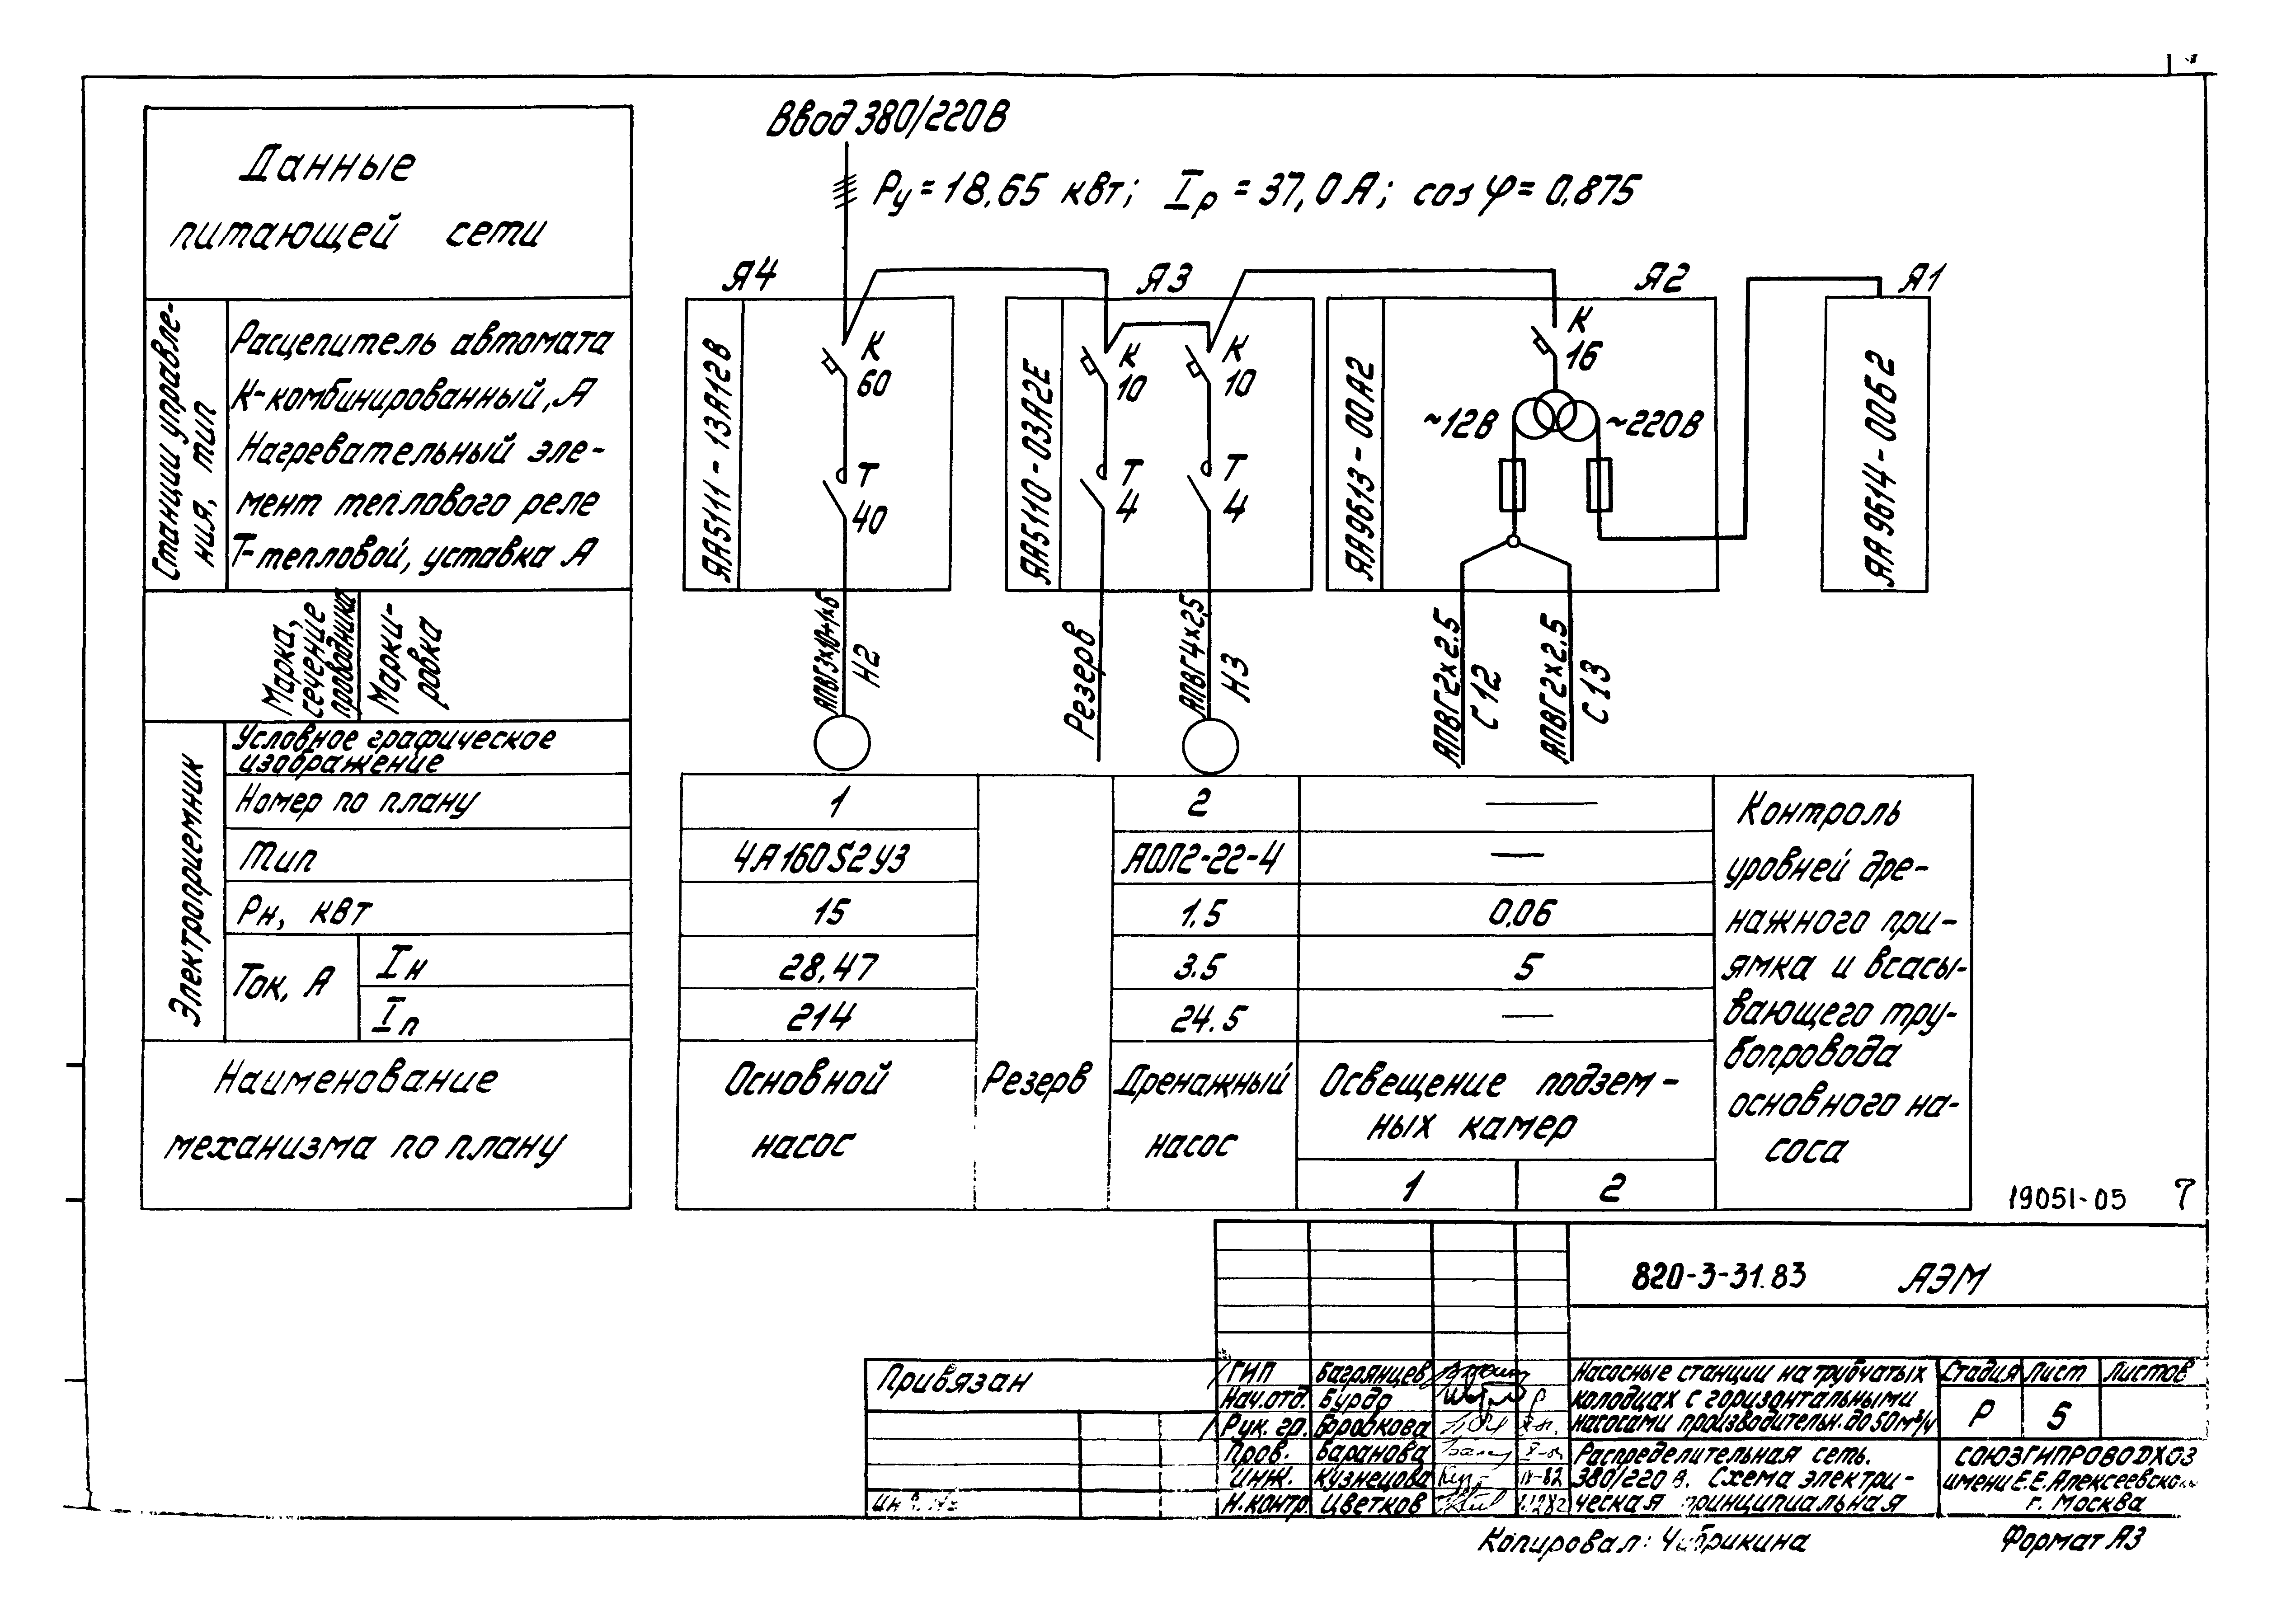 Ввод 380/220В
Ру = 18,65 квт; Iр = 37,0 А; cos φ = 0,875
Данные
питающей сети
Станции управле-
ния, тип
Расцепитель автомата
К-комбинированный, А
Нагревательный эле-
мент теплового реле
Т-тепловой, уставка А
Марка,
сечение
проводника
Марки-
ровка
Электроприемник
Условное графическое
изображение
Номер по плану
Тип
Рн, квт
Ток, А
Iн
Iп
Наименование
механизма по плану
Я4
ЯА5111-13А12В
К
60
Т
40
АПВГ3х10+1х6
Н2
Я3
ЯА5110-03А2Е
К
10
Т
4
К
10
Т
4
Резерв
АПВГ4х2,5
Н3
Я2
ЯА9613-00А2
К
16
~12В
~220В
АПВГ2х2.5
С12
АПВГ2х2.5
С13
Я1
ЯА9614-00Б2
1
4А160S2У3
15
28,47
214
Основной
насос
Резерв
2
АОЛ2-22-4
1,5
3.5
24.5
Дренажный
насос
—
—
0,06
5
—
Освещение подзем-
ных камер
1 2
Контроль
уровней дре-
нажного при-
ямка и всасы-
вающего тру-
бопровода
основного на-
соса
19051-05 7
820-3-31.83 АЭМ
Привязан
ГИП Багрянцев
Нач.отд. Бурдо
Рук. гр. Бродкова
Пров. Баранова
Инж. Кузнецова IV-82
Н.контр. Цветков
Насосные станции на трубчатых
колодцах с горизонтальными
насосами производительн. до 50м³/ч
Стадия Лист Листов
Р 5
Распределительная сеть.
380/220 в. Схема электри-
ческая принципиальная
СОЮЗГИПРОВОДХОЗ
имени Е.Е.Алексеевского
г. Москва
Копировал: Чибрикина
Формат А3